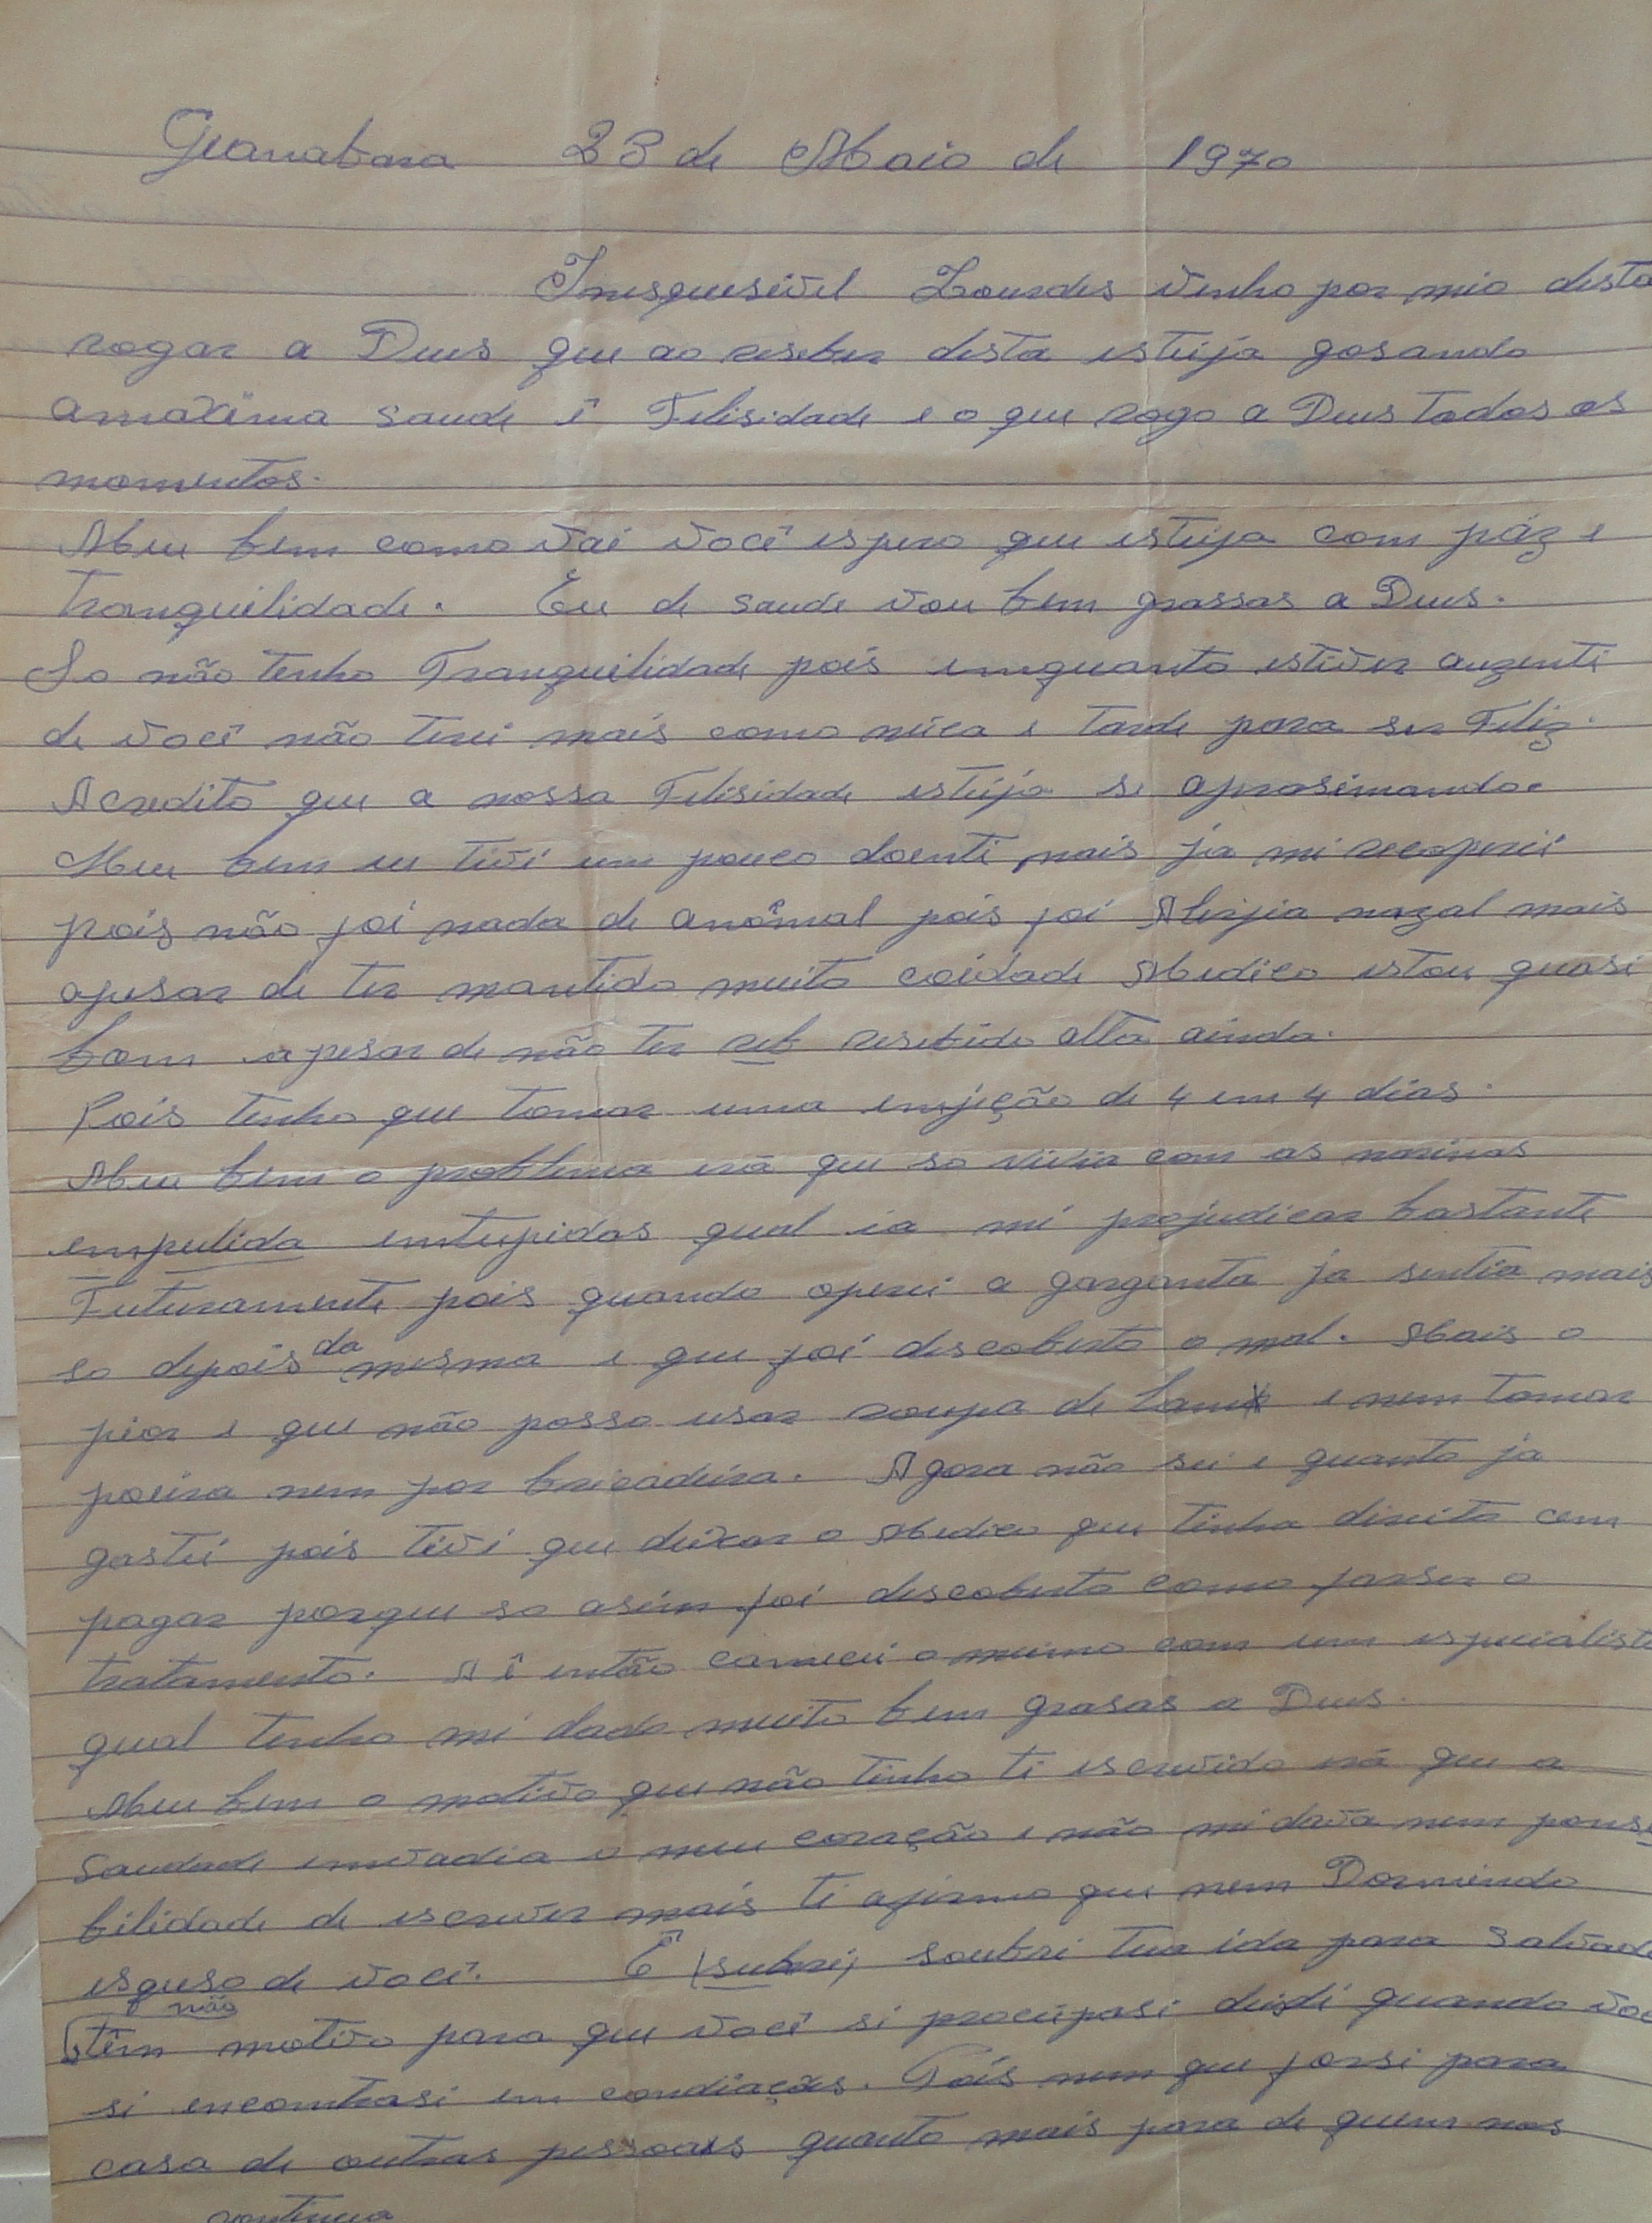 Guanabara 23 de Maio de 1970
Inesquesivel Lourdes venho por meio desta
rogar a Deus que ao reseber desta esteija gosando
amaxima saude i Felisidade e o que rogo a Deus todos os
momentos.
Meu bem como vai você espero que esteija com páz e
tranquilidade. Eu de saude vou bem grassas a Deus.
So não tenho Tranquilidade pois emquanto estiver auzenti
de você não terei mais como nuca e tarde para ser Feliz.
Acredito que a nossa Felisidade esteija si aprosimando.
Meu bem eu tivi um pouco doenti mais ja mi recuperei
pois não foi nada de anôrmal pois foi Alerjia nazal mais
apesar de ter mantido muito coidade Medico estou quasi
bom apesar de não ter reb resebido alta ainda.
Pois tenho que tomar uma enjeção de 4 em 4 dias.
Meu bem o problema erá que so vivia com as narinas
empulida entupidas qual ia mi prejudicar bastante
Futuramente pois quando operei a garganta ja sentia mais
so depois da mesma e que foi descoberto o mal. Mais o
pior e que não posso usar roupa de lam e nem tomar
poeira nem por bricadeira. Agora não sei e quanto ja
gastei pois tivi que deixar o Medico que tinha direito cem
pagar porque so asim foi descoberto como farser o
tratamento. A i então comecei o mesmo com um especialista
qual tenho mi dado muito bem grasas a Deus.
Meu bem o motivo que não tinho ti escrevido erá que a
Saudade envadia o meu coração e não mi dava nem pousi
bilidade de escrever mais ti afirmo que nem Dormindo
esqueso de você. E (subri) soubri tua ida para Salvado
não
tem motivo para que você si procupasi desdi quando você
si encontrasi em condiações. Pois nem que forsi para
casa de outras pessoass quanto mais para de quem nos
continua